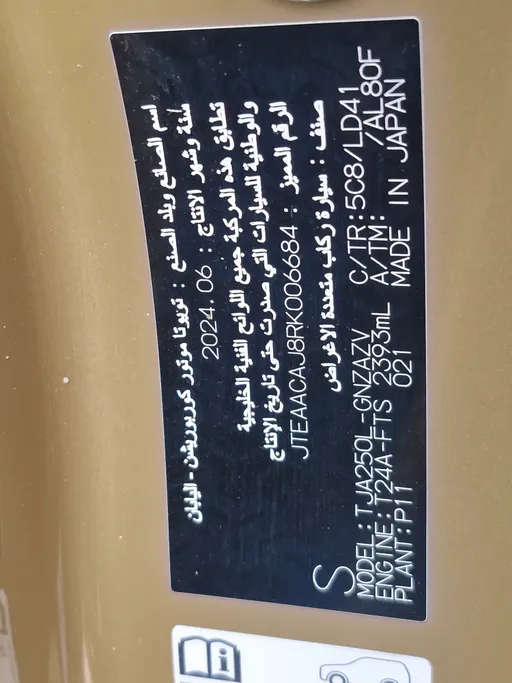 اسم الصانع وبلد الصنع : تويوتا موتور كوربوريشن - اليابان
سنة وشهر الانتاج : 2024.06
تطابق هذه المركبة جميع اللوائح الفنية الخليجية
والوطنية للسيارات التي صدرت حتى تاريخ الإنتاج
الرقم المميز : JTEAACAJ8RK006684
صنف : سيارة ركاب متعددة الاغراض
S
MODEL:TJA250L-GNZAZV C/TR:5C8/LD41
ENGINE:T24A-FTS 2393mL A/TM: /AL80F
PLANT:P11 021 MADE IN JAPAN